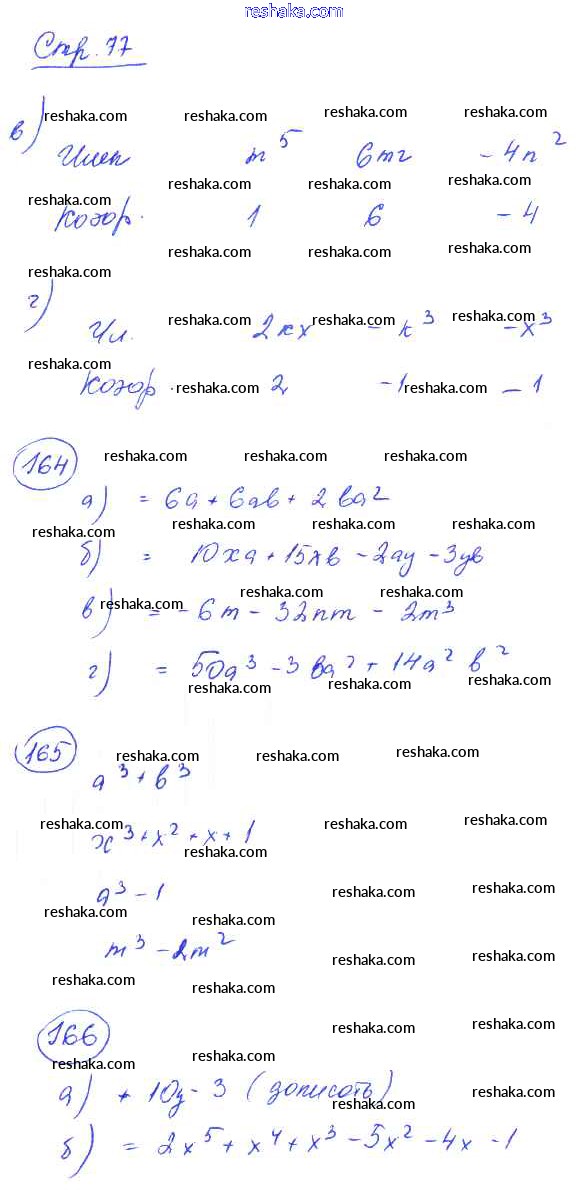 reshaka.com
Стр. 77
в)
reshaka.com reshaka.com reshaka.com reshaka.com
Член m⁵ 6mn -4n²
reshaka.com reshaka.com reshaka.com reshaka.com
Коэф. 1 6 -4
reshaka.com reshaka.com reshaka.com reshaka.com
г)
Чл. reshaka.com 2kx reshaka.com - k³ reshaka.com -x³
reshaka.com
Коэф. reshaka.com 2 -1 reshaka.com -1
164 reshaka.com reshaka.com reshaka.com
а) = 6a + 6ab + 2ba²
reshaka.com reshaka.com reshaka.com reshaka.com
б) = 10xa + 15xb - 2ay - 3yb
reshaka.com reshaka.com reshaka.com
в) = -6m - 32nm - 2m³
г) = 50a³ - 3ba² + 14a²b²
reshaka.com reshaka.com reshaka.com
165 reshaka.com reshaka.com reshaka.com
a³ + b³
reshaka.com reshaka.com reshaka.com
x³ + x² + x + 1
reshaka.com
a³ - 1 reshaka.com reshaka.com
reshaka.com reshaka.com
m³ - 2m²
reshaka.com reshaka.com reshaka.com reshaka.com
166 reshaka.com reshaka.com
reshaka.com reshaka.com
а) + 10y - 3 (дописать) reshaka.com
reshaka.com
б) = 2x⁵ + x⁴ + x³ - 5x² - 4x - 1
reshaka.com reshaka.com